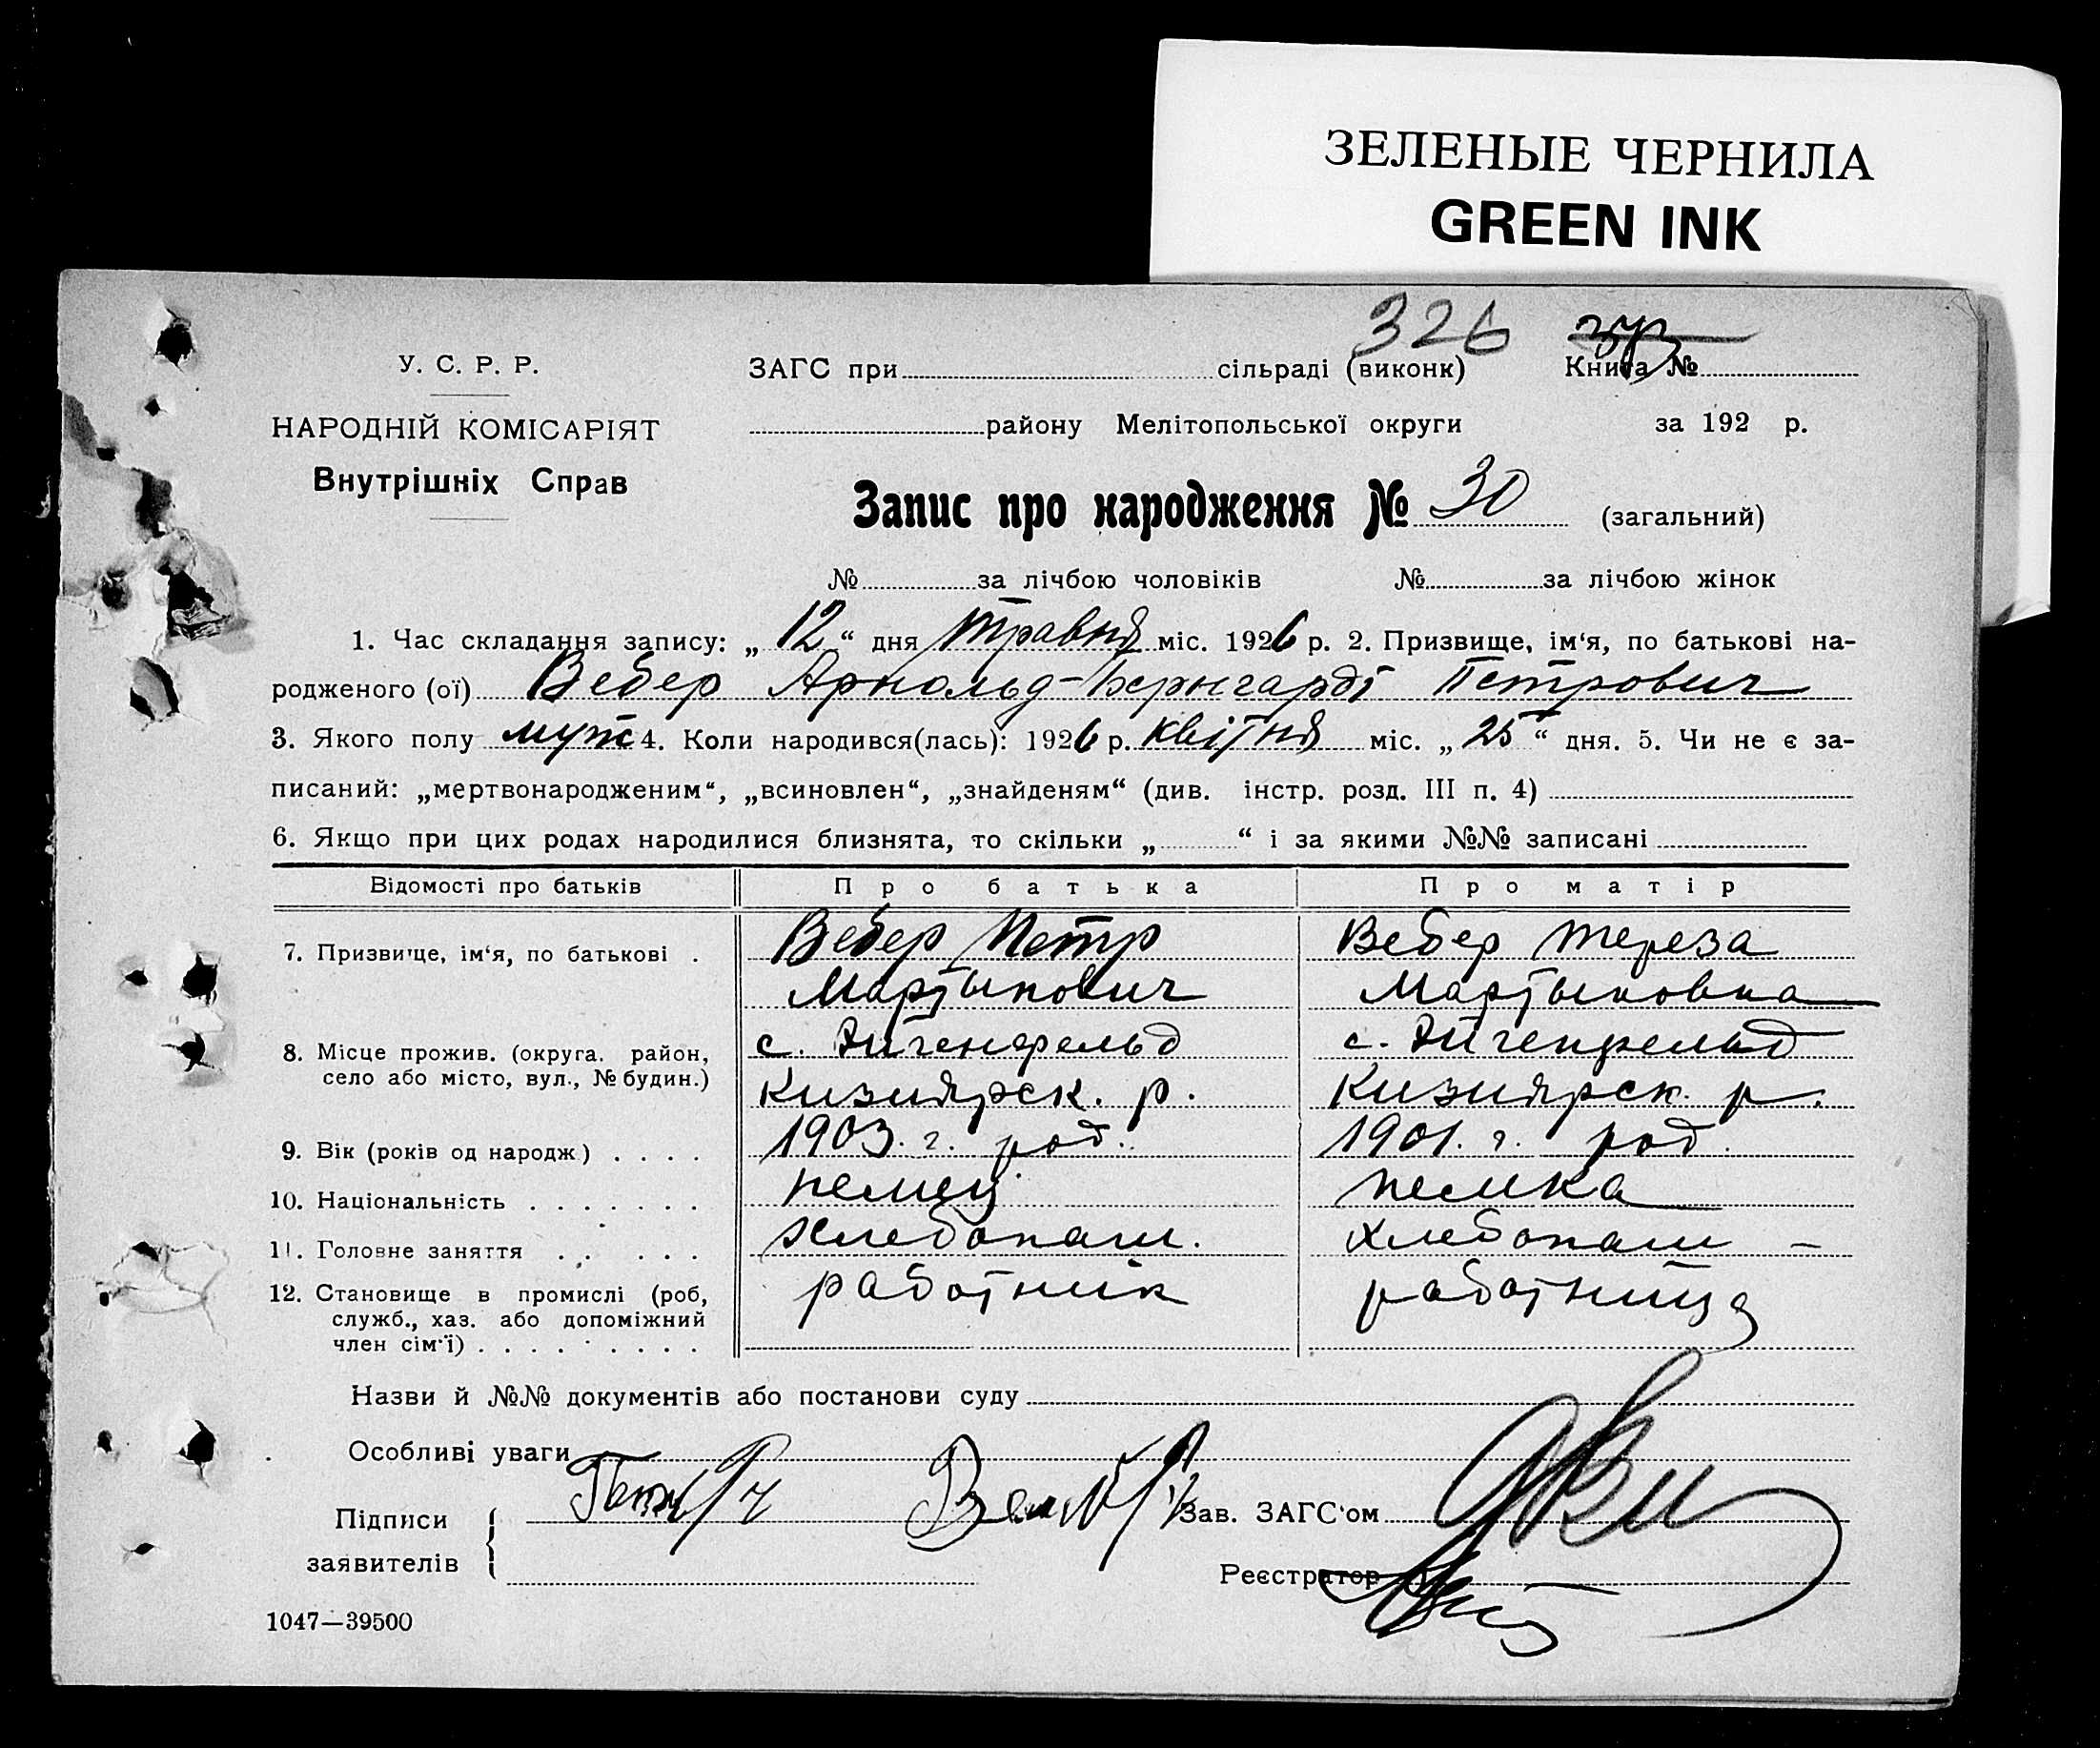 ЗЕЛЕНЫЕ ЧЕРНИЛА
GREEN INK
326
У. С. Р. Р. ЗАГС при сільраді (виконк) Книга №
НАРОДНІЙ КОМІСАРІЯТ району Мелітопольської округи за 192 р.
Внутрішніх Справ
Запис про народження № 30 (загальний)
№ за лічбою чоловіків № за лічбою жінок
1. Час складання запису: „12“ дня травня міс. 1926 р. 2. Призвище, ім‘я, по батькові на-
родженого (ої) Вебер Арнольд-Бернгардт Петрович
3. Якого полу муж 4. Коли народився(лась): 1926 р. квітня міс. „25“ дня. 5. Чи не є за-
писаний: „мертвонародженим“, „всиновлен“, „знайденям“ (див. інстр. розд. III п. 4)
6. Якщо при цих родах народилися близнята, то скільки „ “ і за якими №№ записані
Відомості про батьків Про батька Про матір
7. Призвище, ім‘я, по батькові . Вебер Петр Вебер Тереза
Мартынович Мартыновна
8. Місце прожив. (округа. район, с. Эйгенфельд с. Эйгенфельд
село або місто, вул., № будин.) Кизиярск. р. Кизиярск. р.
9. Вік (років од народж) . . . . 1903. г. род. 1901. г. род.
10. Національність . . . . . . . немец немка
11. Головне заняття . . . . . хлебопаш. хлебопаш –
12. Становище в промислі (роб, работник работница
служб., хаз. або допоміжний
член сім‘ї) . . . . . . . . .
Назви й №№ документів або постанови суду
Особливі уваги
Підписи Зав. ЗАГС‘ом
заявителів Реєстратор
1047—39500